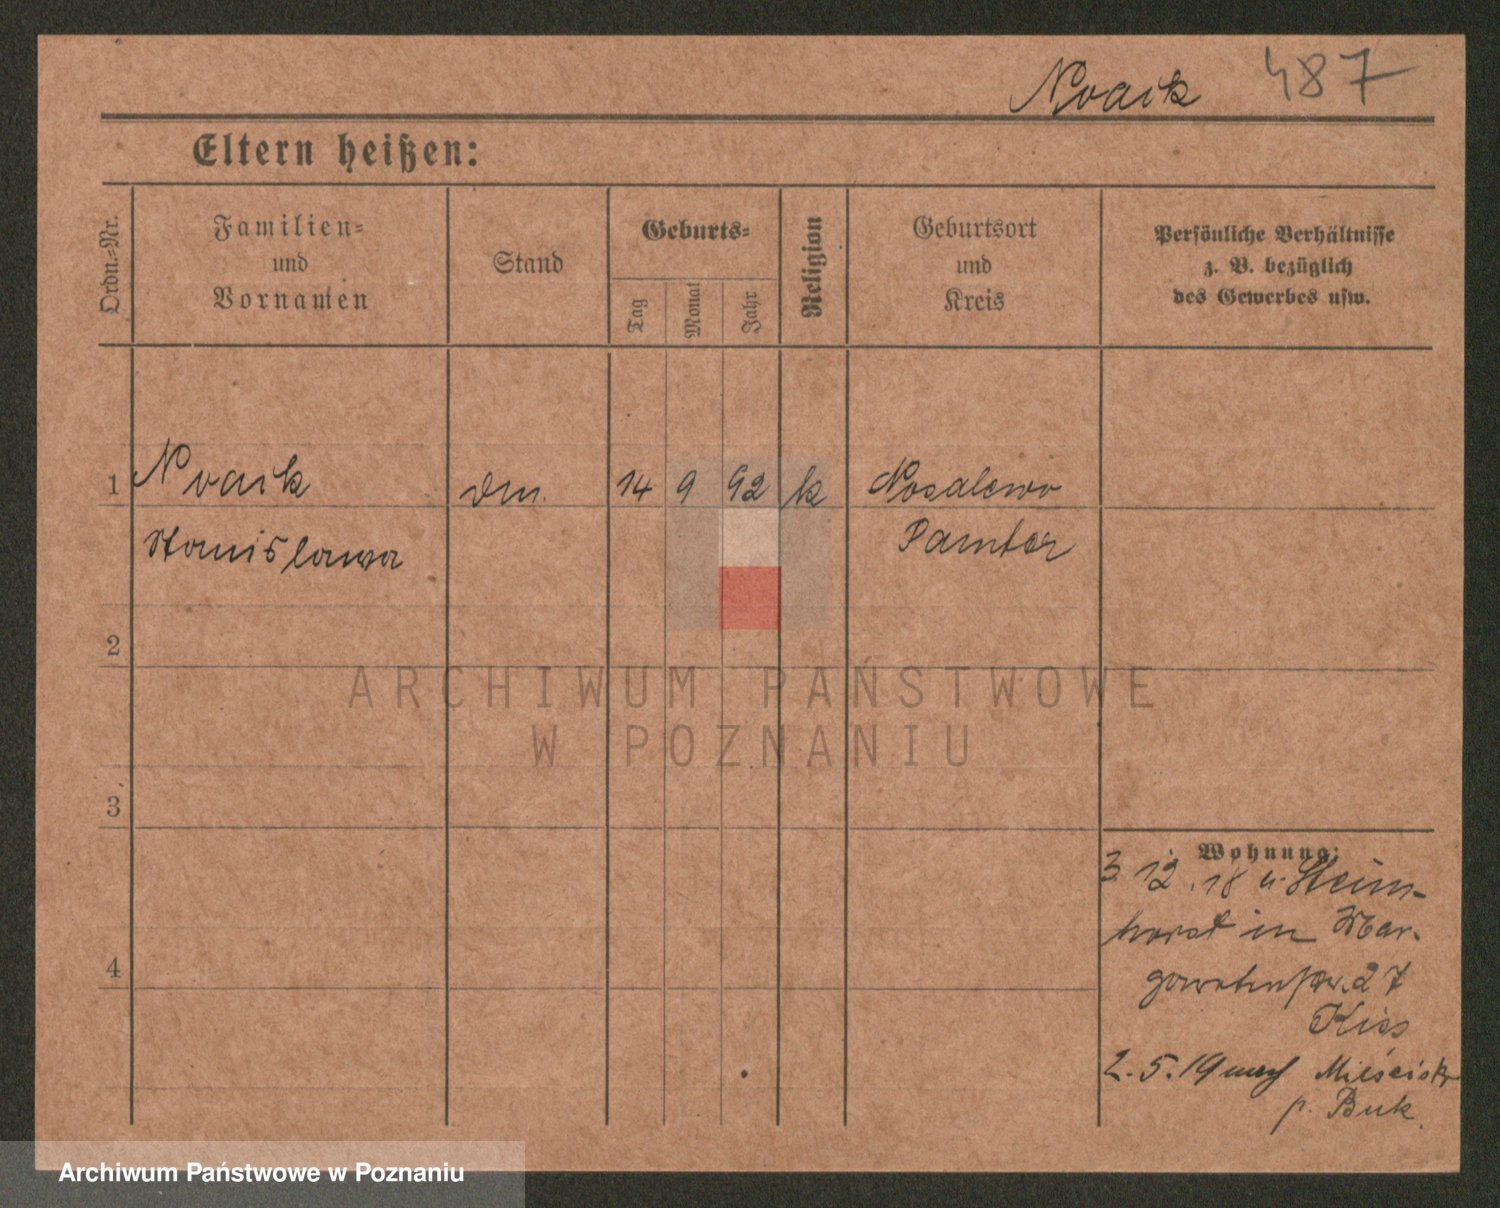 Nowik 487
Eltern heißen:
Ordn.-Nr.
Familien-
und
Vornamen
Stand
Geburts-
Tag
Monat
Jahr
Religion
Geburtsort
und
Kreis
Persönliche Verhältnisse
z. B. bezüglich
des Gewerbes usw.
1 14 9 92 k
Stanislawa
2
ARCHIWUM PAŃSTWOWE
W POZNANIU
3
Wohnung:
3. 12. 18 v. Steim-
horst in Mar-
4
27
2. 5. 19 nach Mieścisk
p. Buk.
Archiwum Państwowe w Poznaniu